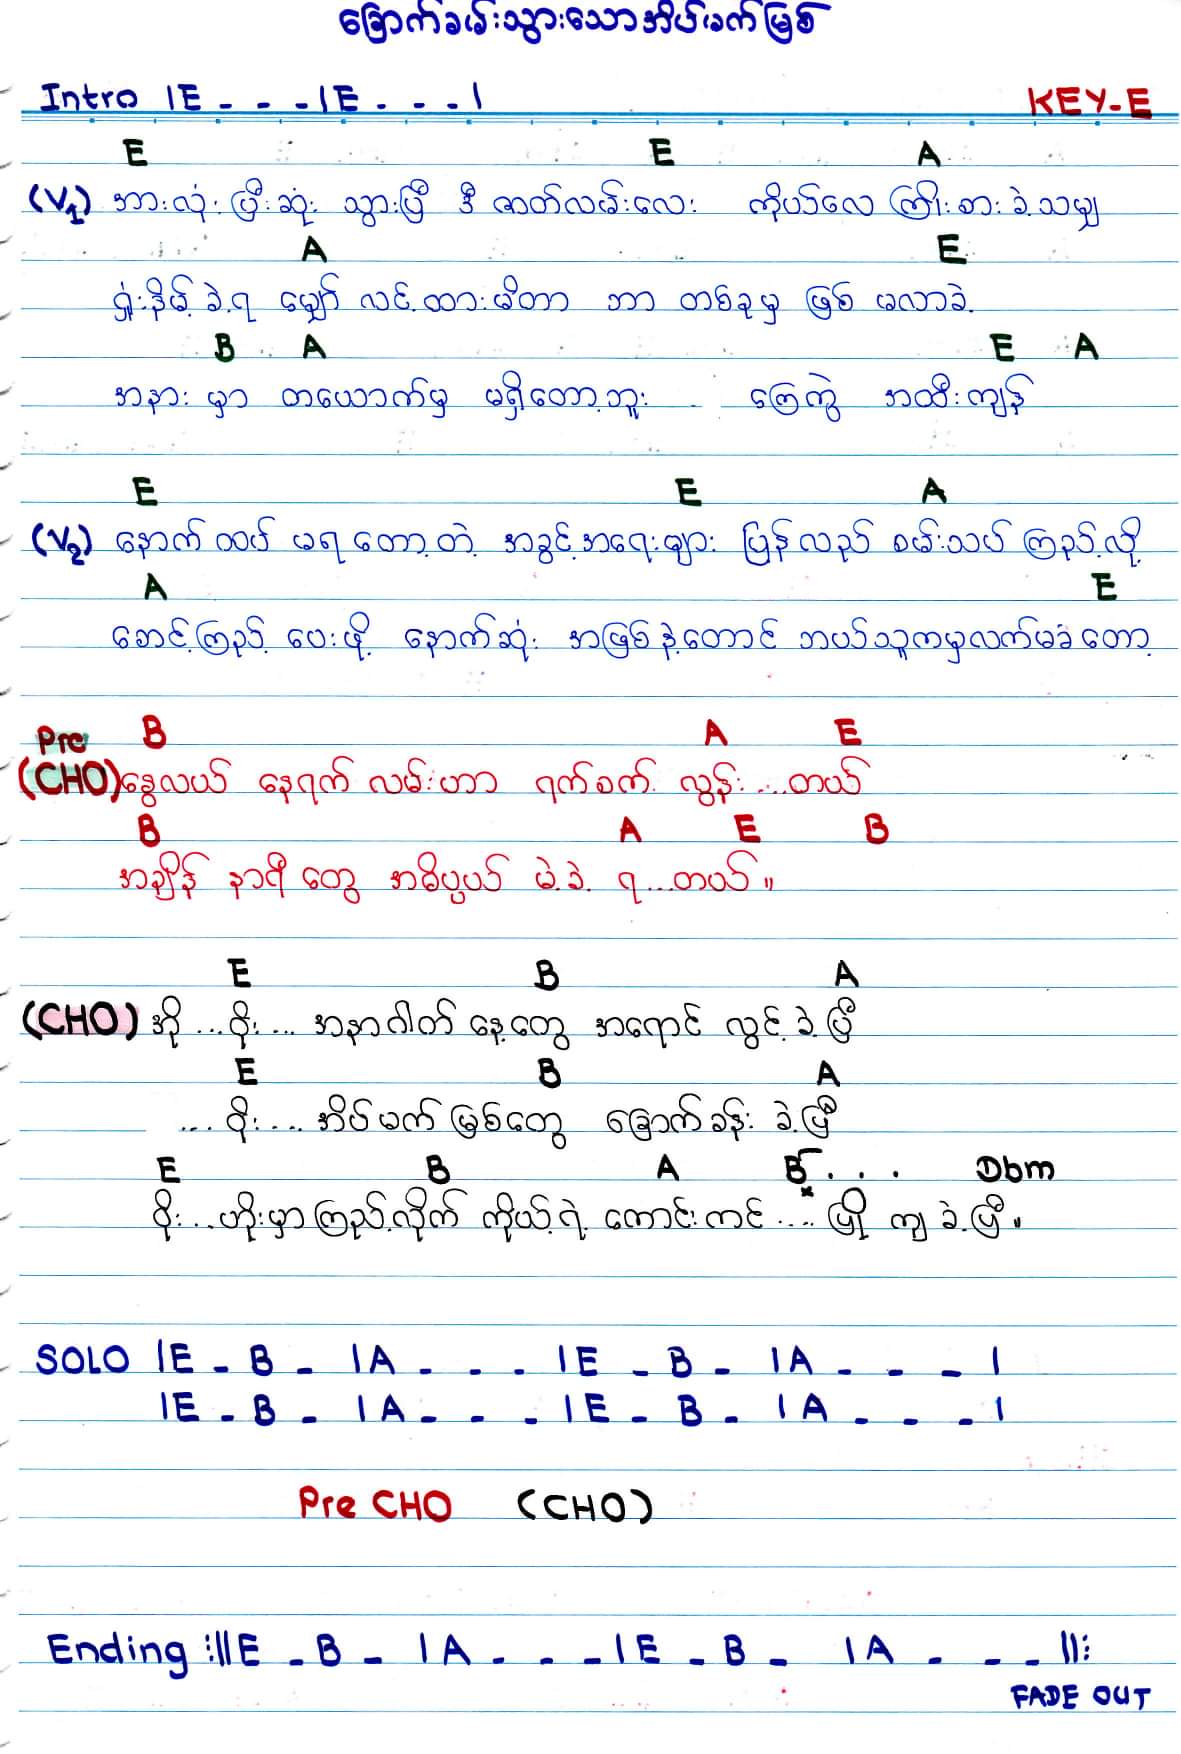 ခြောက်ခမ်းသွားသောအိပ်မက်မြစ်
Intro |E - - - |E - - - |
KEY-E
E E A
(V1) အားလုံး ပြီးဆုံး သွားပြီ ဒီ ဇာတ်လမ်းလေး ကိုယ်လေ ကြိုးစားခဲ့သမျှ
A E
ရှုံးနိမ့်ခဲ့ရ မျှော်လင့်ထားမိတာ ဘာ တစ်ခုမှ ဖြစ် မလာခဲ့
B A E A
အနား မှာ တယောက်မှ မရှိတော့ဘူး ကြေကွဲ အထီးကျန်
E E A
(V2) နောက် ထပ် မရ တော့တဲ့ အခွင့်အရေးများ ပြန်လည် စမ်းသပ် ကြည့်လို့
A E
စောင့်ကြည့် ပေးဖို့ နောက်ဆုံး အဖြစ်နဲ့တောင် ဘယ်သူကမှလက်မခံ တော့
Pre B A E
(CHO) နွေလယ် နေ့ရက် လမ်းဟာ ရက်စက် လွန်း ....တယ်
B A E B
အချိန် နာရီ တွေ အဓိပ္ပယ် မဲ့ခဲ့ ရ...တယ် ။
E B A
(CHO) အို ... ဝိုး ... အနာဂါတ် နေ့တွေ အရောင် လွင့် ခဲ့ ပြီ
E B A
... ဝိုး .... အိပ်မက် မြစ်တွေ ခြောက်ခန်း ခဲ့ပြီ
E B A B . . . Dbm
ဝိုး ...ဟိုးမှာကြည့်လိုက် ကိုယ့်ရဲ့ ကောင်းကင် .... ပြို ကျ ခဲ့ပြီ ။
SOLO |E - B - |A - - - |E - B - |A - - - |
|E - B - |A - - - |E - B - |A - - - |
Pre CHO (CHO)
Ending :||E - B - |A - - - |E - B - |A - - - ||:
FADE OUT